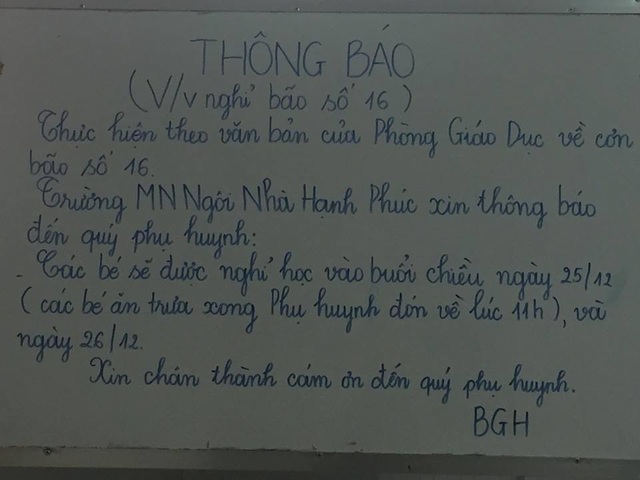 THÔNG BÁO
(V/v nghỉ bão số 16)
Thực hiện theo văn bản của Phòng Giáo Dục về cơn
bão số 16.
Trường MN Ngôi Nhà Hạnh Phúc xin thông báo
đến quý phụ huynh:
- Các bé sẽ được nghỉ học vào buổi chiều ngày 25/12
(các bé ăn trưa xong Phụ huynh đón về lúc 11h), và
ngày 26/12.
Xin chân thành cám ơn đến quý phụ huynh.
BGH